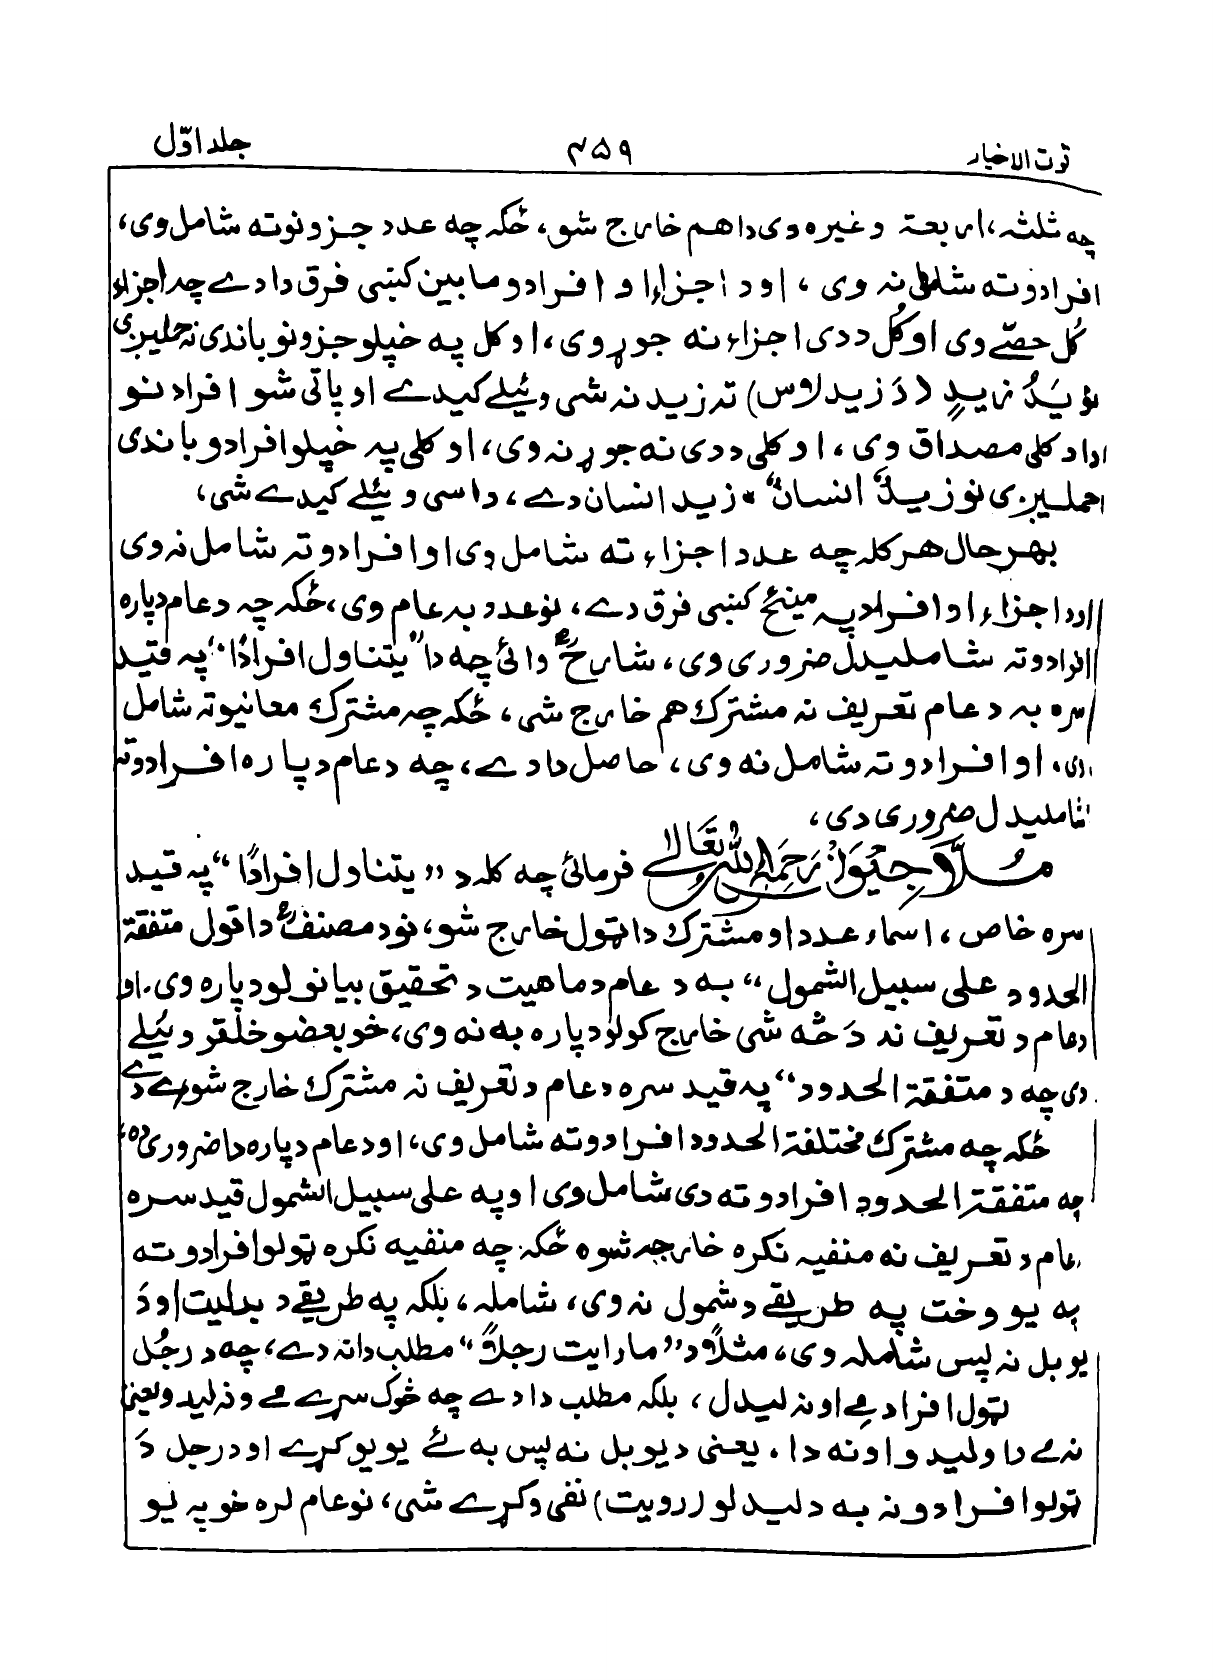 قوت الاخیار ۴۵۹ جلد اوّل
چه ثلثه، اربعة وغیره وی دا هم خارج شو، ځکه چه عدد جزونوته شامل وی،
افرادوته شامل نه وی، او د اجزاء او افرادو مابین کښی فرق دا دے چه اجزاء
کُل حصّے وی او کُل د دی اجزاء نه جوړ وی، او کل په خپلو جزونو باندی نه حملیږی
یَدُ زیدٍ (دَ زید لاس) ته زید نه شی وئیلے کیدے او پاتی شو افراد نو
دا د کلی مصداق وی، او کلی د دی نه جوړ نه وی، او کلی په خپلو افرادو باندی
حملیږی نو زیدٌ انسانٌ "زید انسان دے، داسی وئیلے کیدے شی،
بهرحال هرکله چه عدد اجزاء ته شامل وی او افرادوته شامل نه وی
او د اجزاء او افراد په مینځ کښی فرق دے، نو عدد به عام وی، ځکه چه د عام دپاره
افرادوته شاملیدل ضروری وی، شارحؒ وائی چه دا "یتناول افرادًا" په قید
سره به د عام تعریف نه مشترک هم خارج شی، ځکه چه مشترک معانیوته شامل
وی، او افرادوته شامل نه وی، حاصل دا دے، چه د عام دپاره افرادوته
شاملیدل ضروری دی،
مُلّا جِیْوَنْ رَحِمَهُ اللهُ تَعَالٰے فرمائی چه کله د "یتناول افرادًا" په قید
سره خاص، اسماء عدد او مشترک دا ټول خارج شو، نو د مصنفؒ دا قول متفقة
الحدود علی سبیل الشمول" به د عام د ماهیت د تحقیق بیانولو دپاره وی. او
د عام د تعریف نه دَ څه شی خارج کولو دپاره به نه وی، خو بعضو خلقو وئیلے
دی چه د متفقة الحدود" په قید سره د عام د تعریف نه مشترک خارج شوے دے
ځکه چه مشترک مختلفة الحدود افرادوته شامل وی، او د عام دپاره دا ضروری ده،
چه متفقة الحدود افرادوته دی شامل وی او په علی سبیل الشمول قید سره
عام د تعریف نه منفیه نکره خارجه شوه ځکه چه منفیه نکره ټولو افرادوته
په یو وخت په طریقے د شمول نه وی، شامله، بلکه په طریقے د بدلیت او دَ
یو بل نه پس شامله وی، مثلاً د "ما رایت رجلاً" مطلب دا نه دے، چه د رجُل
ټول افراد مے او نه لیدل، بلکه مطلب دا دے چه څوک سرے مے و نه لیدو یعنی
نه مے دا ولیدو او نه دا، یعنی د یو بل نه پس به ئے یو یو کرے او د رجل دَ
ټولو افرادو نه به د لیدلو (رویت) نفی وکړے شی، نو عام لره خو په یو